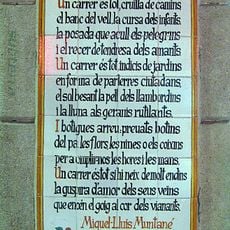 Un carrer és tot, cruïlla de camins
el banc del vell, la cursa dels infants,
la posada que acull els pelegrins
i el recer de tendresa dels amants.
Un carrer és tot indicis de jardins
en forma de parterres ciutadans,
el sol besant la pell dels llambordins
i la lluna als geranis rutilants.
I botigues arreu; prevatis botins
del pa, les flors, les nines o els coixins
per a omplir-nos les hores i les mans.
Un carrer és tot si hi neix de molt endins
la guspira d'amor dels seus veïns
que encén el goig al cor dels vianants.
Miquel-Lluís Muntané